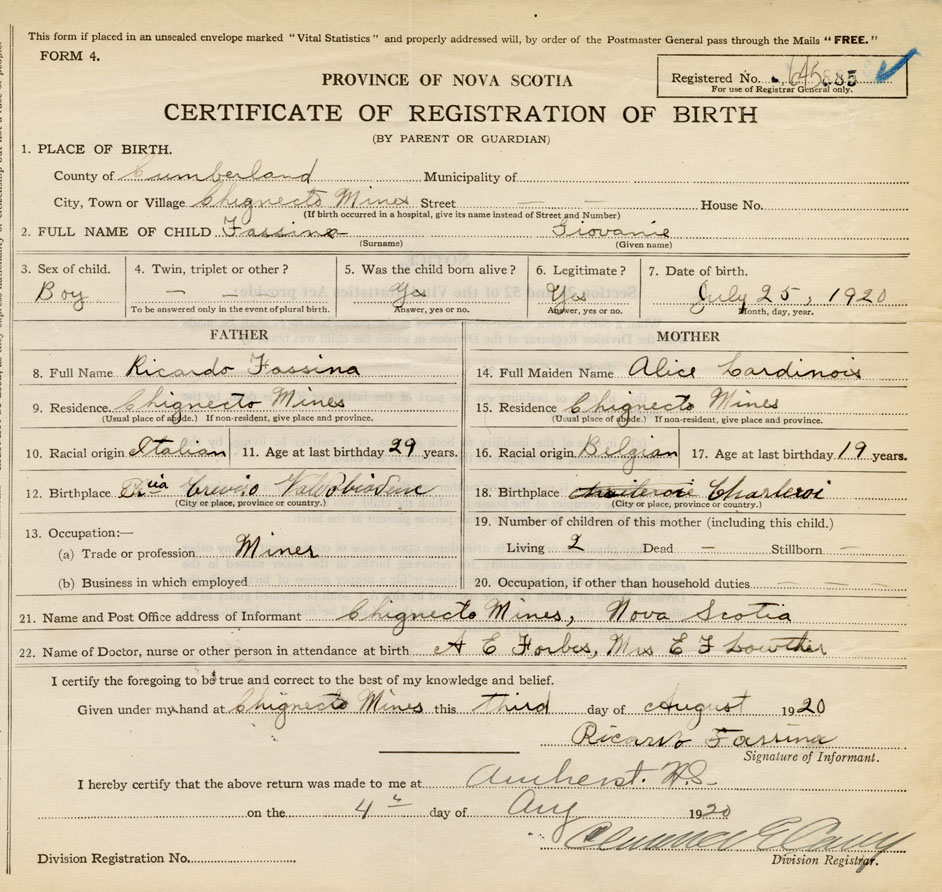 This form if placed in an unsealed envelope marked "Vital Statistics" and properly addressed will, by order of the Postmaster General pass through the Mails "FREE."
FORM 4.
Registered No.
For use of Registrar General only.
PROVINCE OF NOVA SCOTIA
CERTIFICATE OF REGISTRATION OF BIRTH
(BY PARENT OR GUARDIAN)
1. PLACE OF BIRTH.
County of Cumberland Municipality of
City, Town or Village Chignecto Mines Street — — House No.
(If birth occurred in a hospital, give its name instead of Street and Number)
2. FULL NAME OF CHILD Fassina Giovanie
(Surname) (Given name)
3. Sex of child. 4. Twin, triplet or other? 5. Was the child born alive? 6. Legitimate? 7. Date of birth.
Boy — — — Yes Yes July 25, 1920
To be answered only in the event of plural birth. Answer, yes or no. Answer, yes or no. Month, day, year.
FATHER MOTHER
8. Full Name Ricardo Fassina 14. Full Maiden Name Alice Cardinois
9. Residence Chignecto Mines 15. Residence Chignecto Mines
(Usual place of abode.) If non-resident, give place and province. (Usual place of abode.) If non-resident, give place and province.
10. Racial origin Italian 11. Age at last birthday 29 years. 16. Racial origin Belgian 17. Age at last birthday 19 years.
12. Birthplace 18. Birthplace Charleroi
(City or place, province or country.) (City or place, province or country.)
13. Occupation:— 19. Number of children of this mother (including this child.)
(a) Trade or profession Miner Living 2 Dead — Stillborn —
(b) Business in which employed 20. Occupation, if other than household duties — — —
21. Name and Post Office address of Informant Chignecto Mines, Nova Scotia
22. Name of Doctor, nurse or other person in attendance at birth A E Forbes, Mrs E F Lowther
I certify the foregoing to be true and correct to the best of my knowledge and belief.
Given under my hand at Chignecto Mines this third day of August 1920
Ricardo Fassina
Signature of Informant.
I hereby certify that the above return was made to me at Amherst. N.S.
on the 4th day of Aug 1920
Division Registration No. Division Registrar.